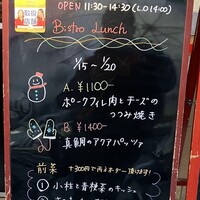 OPEN 11:30-14:30 (L.O 14:00)
Bistro Lunch
1/15~1/20
A. ¥1100-
ポークフィレ肉とチーズの
つつみ焼き
B. ¥1400-
真鯛のアクアパッツァ
前菜 +300円で両メニュー頂けます!
① 小柱と青梗菜のキッシュ
②